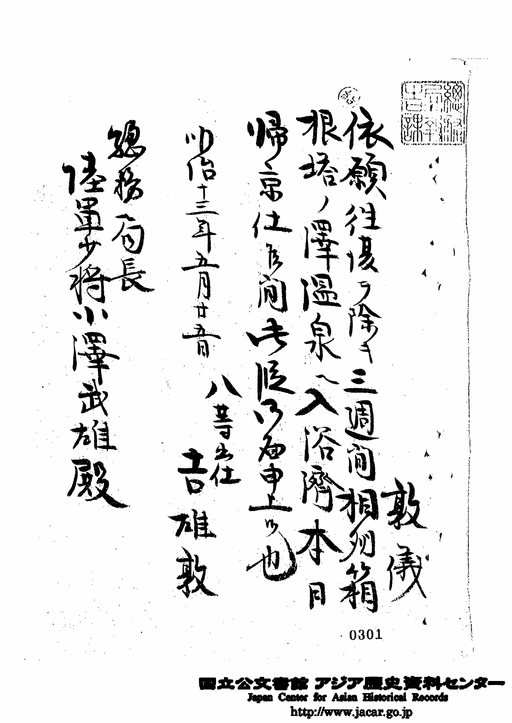 敦儀
依願往復ヲ除キ三週間相州箱
根塔ノ澤温泉ヘ入浴濟本日
帰京仕候間此段御届申上候也
明治十三年五月廿五日
八等出仕
吉雄敦
総務局長
陸軍少将小澤武雄殿
0301
国立公文書館 アジア歴史資料センター
Japan Center for Asian Historical Records
http://www.jacar.go.jp